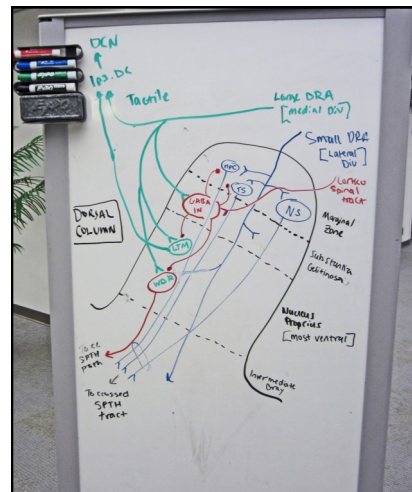 DCN
Ips. DC
Tactile
Large DRA
[medial Div]
Small DRA
[Lateral
Div]
Cortico
Spinal
tract
HPC
TS
GABA
IN
NS
LTM
WDR
DORSAL
COLUMN
Marginal
Zone
Substantia
Gelitinosa
Nucleus
Proprius
[most ventral]
Intermediate
Gray
SPTH
path
To crossed
SPTH
tract
EXPO